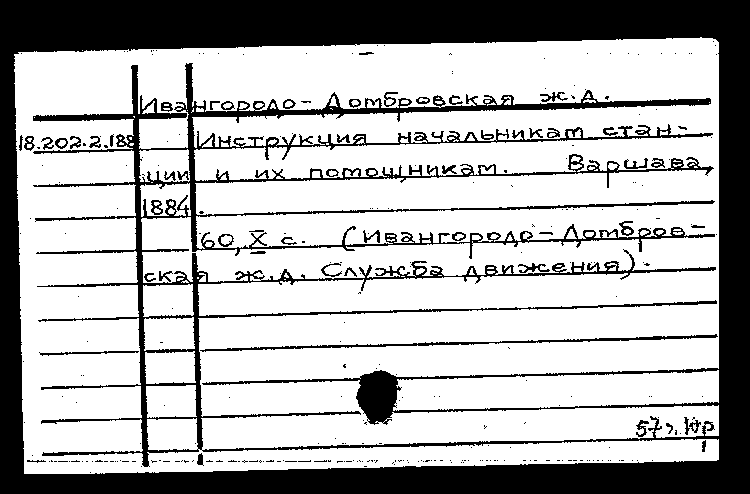 Ивангородо-Домбровская ж.д.
18.202.2.188 Инструкция начальникам стан-
ции и их помощникам. Варшава,
1884.
60, X с. (Ивангородо-Домбров-
ская ж.д. Служба движения).
57
1